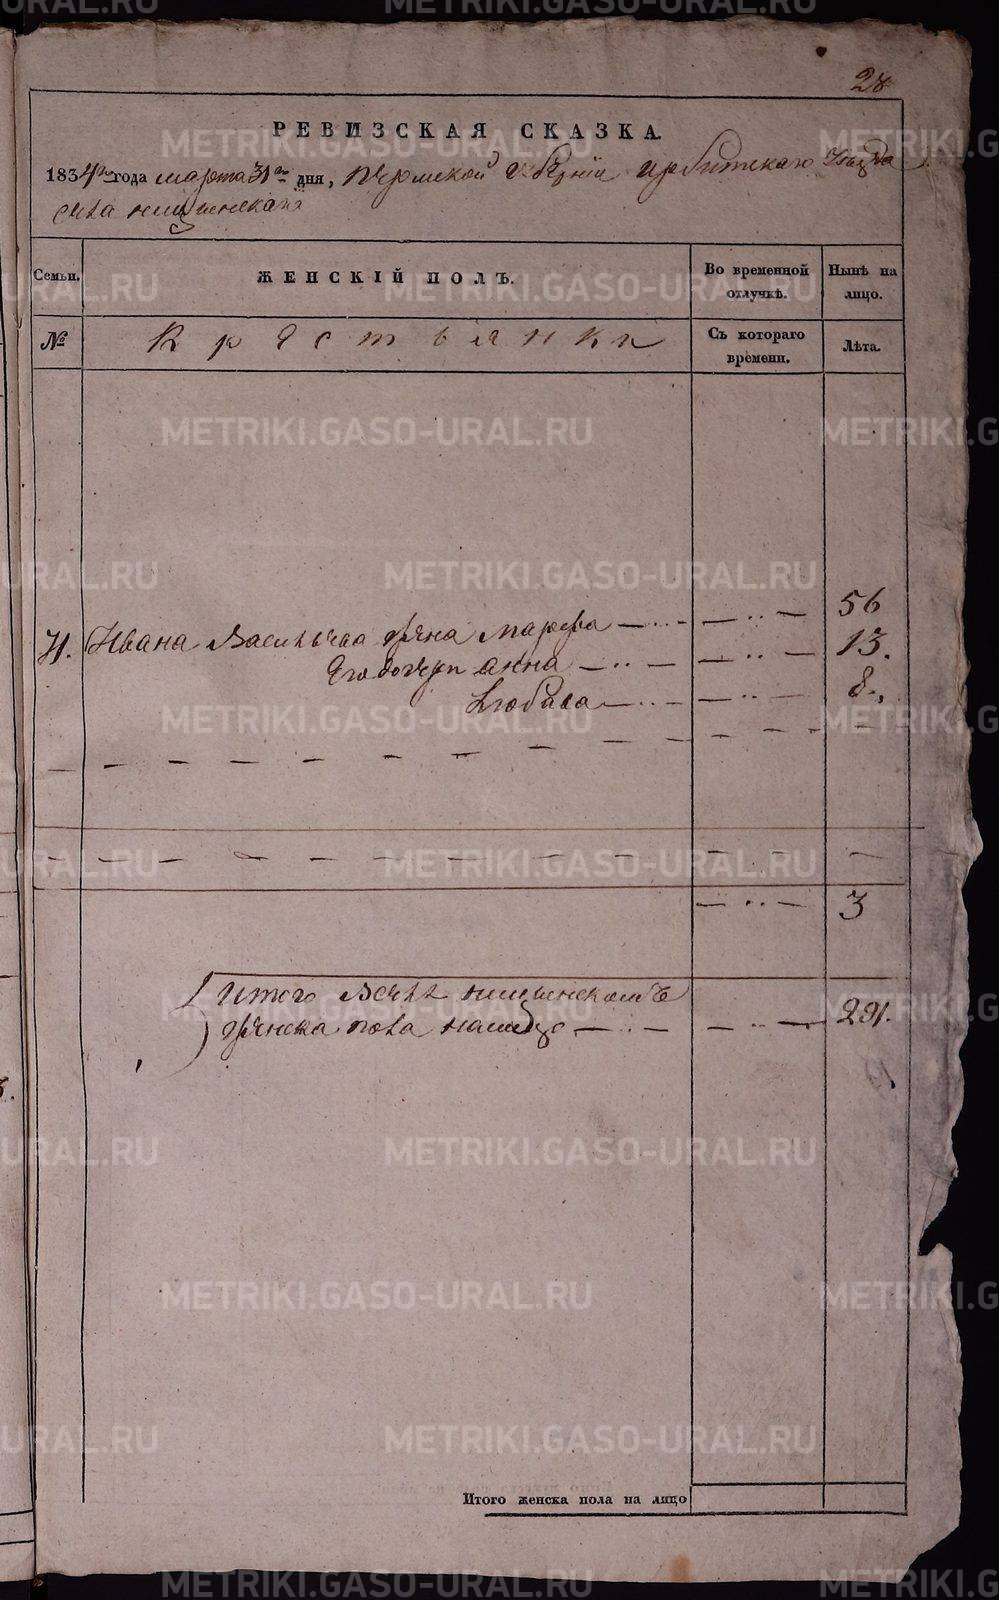 28
РЕВИЗСКАЯ СКАЗКА.
1834го года марта 31го дня, Пермской Губернiи Ирбитскаго Уѣзда
села Ницынскаго
Семьи. ЖЕНСКІЙ ПОЛЪ. Во временной отлучкѣ. Нынѣ на лицо.
№ Крестьянки Съ котораго времени. Лѣта.
71. Ивана Васильева жена Марфа — .. — — .. — 56
Его дочери Анна — .. — — .. — 13.
Любава — .. — — .. — 8.,
— .. — 3
Итого Вселѣ Ницынскомъ
женска пола налицо — .. — — .. — 291.
Итого женска пола на лицо
METRIKI.GASO-URAL.RU